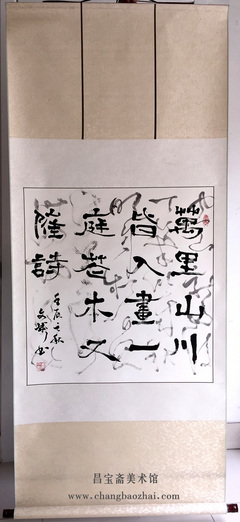 萬里山川
皆入畫一
庭花木又
催詩
壬辰之秋
昌宝斋美术馆
www.changbaozhai.com